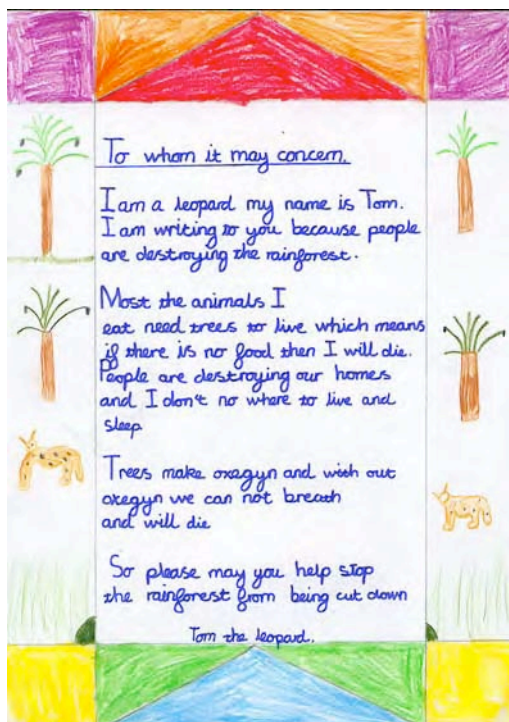 To whom it may concern.
I am a leopard my name is Tom.
I am writing to you because people
are destroying the rainforest.
Most the animals I
eat need trees to live which means
if there is no food then I will die.
People are destroying our homes
and I don't no where to live and
sleep
Trees make oxegyn and with out
oxegyn we can not breath
and will die
So please may you help stop
the rainforest from being cut down
Tom the leopard.